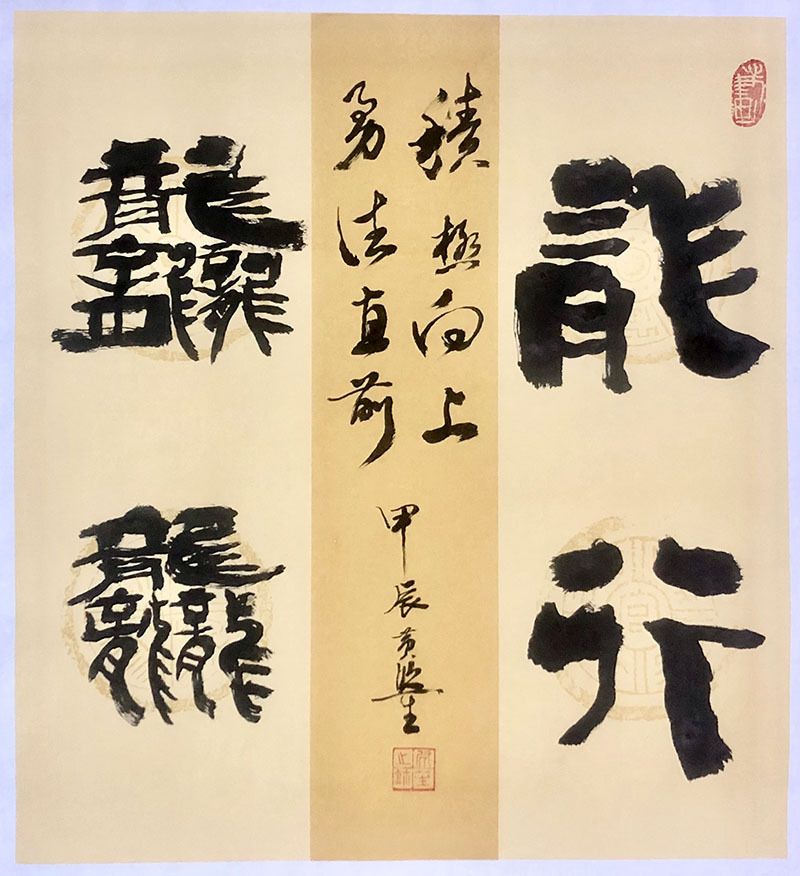 龍行
積極向上
勇往直前
甲辰黄
龘龘